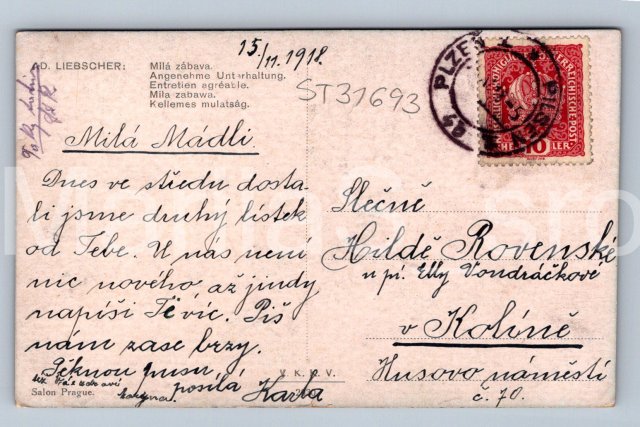 15/11.1918.
AD. LIEBSCHER: Milá zábava.
Angenehme Unterhaltung.
Entretien agréable.
Mila zabawa.
Kellemes mulatság.
ST31693
PLZEŇ 1
PILSEN
10 HELLER
Milá Mádli.
Dnes ve středu dosta-
li jsme druhý lístek
od Tebe. U nás není
nic nového až jindy
napíši Ti víc. Piš
nám zase brzy.
Pěknou pusu
posílá Karla
Slečně
Hildě Rovenské
u pí. Elly Vondráčkové
v Kolíně
Husovo náměstí
č. 70.
V. K. K. V.
Salon Prague.